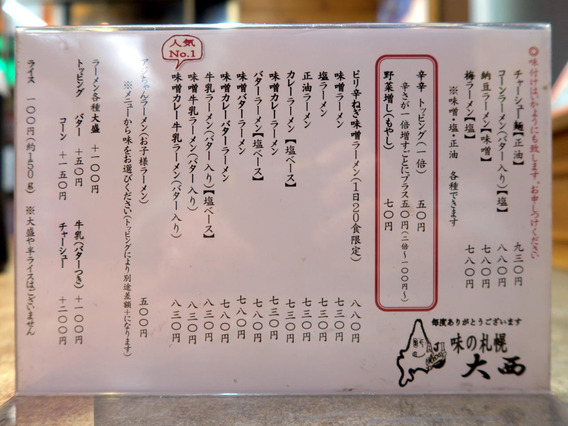 ◎味付けはいかようにも致します。お申しつけください
チャーシュー麺【正油】 九三〇円
コーンラーメン(バター入り)【塩】 八八〇円
納豆ラーメン【味噌】 七八〇円
梅ラーメン【塩】 七八〇円
※味噌・塩・正油 各種できます
辛辛トッピング(一倍) 五〇円
辛さが一倍増すごとにプラス五〇円(二倍〜一〇〇円〜)
野菜増し(もやし) 七〇円
ピリ辛ねぎ味噌ラーメン(1日20食限定) 八八〇円
味噌ラーメン 七三〇円
塩ラーメン 七三〇円
正油ラーメン 七三〇円
カレーラーメン【塩ベース】 七三〇円
バターラーメン【塩ベース】 七八〇円
味噌バターラーメン 七八〇円
味噌カレーラーメン 七三〇円
味噌カレーバターラーメン 七八〇円
牛乳ラーメン(バター入り)【塩ベース】 八三〇円
味噌牛乳ラーメン(バター入り) 八三〇円
人気No.1
味噌カレー牛乳ラーメン(バター入り) 八三〇円
ちゃんラーメン(お子様ラーメン) 五〇〇円
※メニューから味をお選びください(トッピングにより別途差額+になります)
ラーメン各種大盛 +一〇〇円
トッピング バター +五〇円 牛乳(バターつき) +一〇〇円
コーン +一五〇円 チャーシュー +二〇〇円
ライス 一〇〇円(約150g) ※大盛や半ライスはございません
毎度ありがとうございます
味の札幌
大西